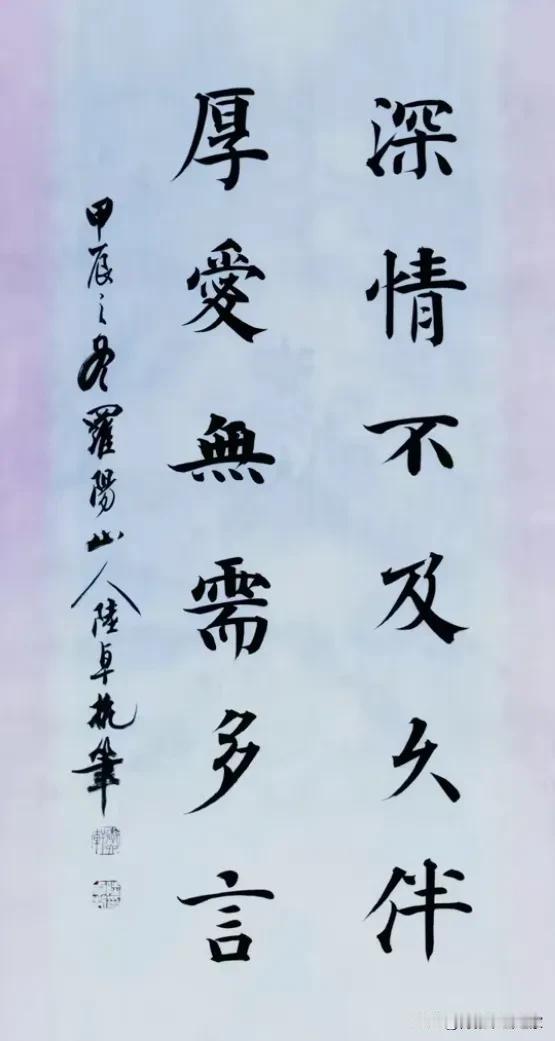 深情不及久伴
厚愛無需多言
甲辰之冬羅陽山人陸卓執筆